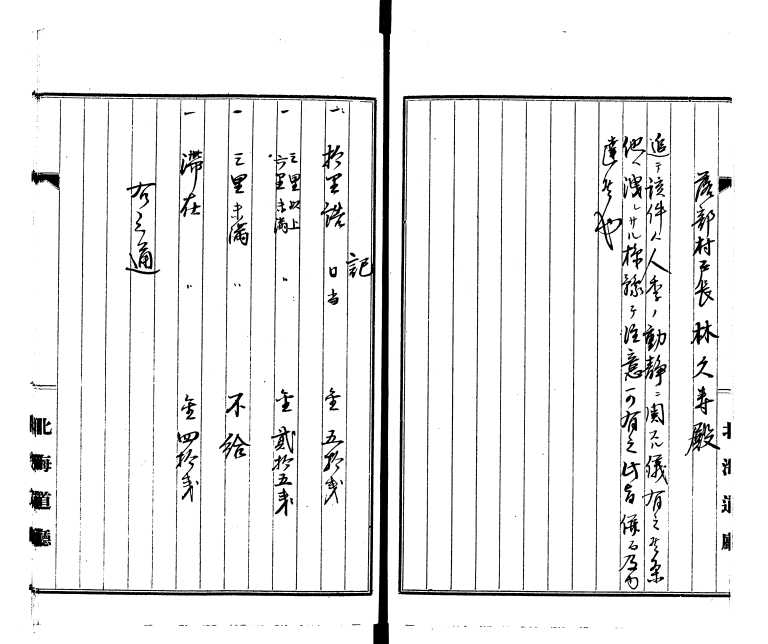 落部村戸長 林久寿殿
追テ該件ハ人事ノ動静ニ関スル儀有之候条
他ヘ洩レサル様篤ク注意可有之此旨併而及内
達候也
記
一 拾里詰 日当 金五拾銭
一 三里以上六里未満 〃 金貳拾五銭
一 三里未満 〃 不給
一 滞在 〃 金四拾銭
右之通
北海道廳
北海道廳